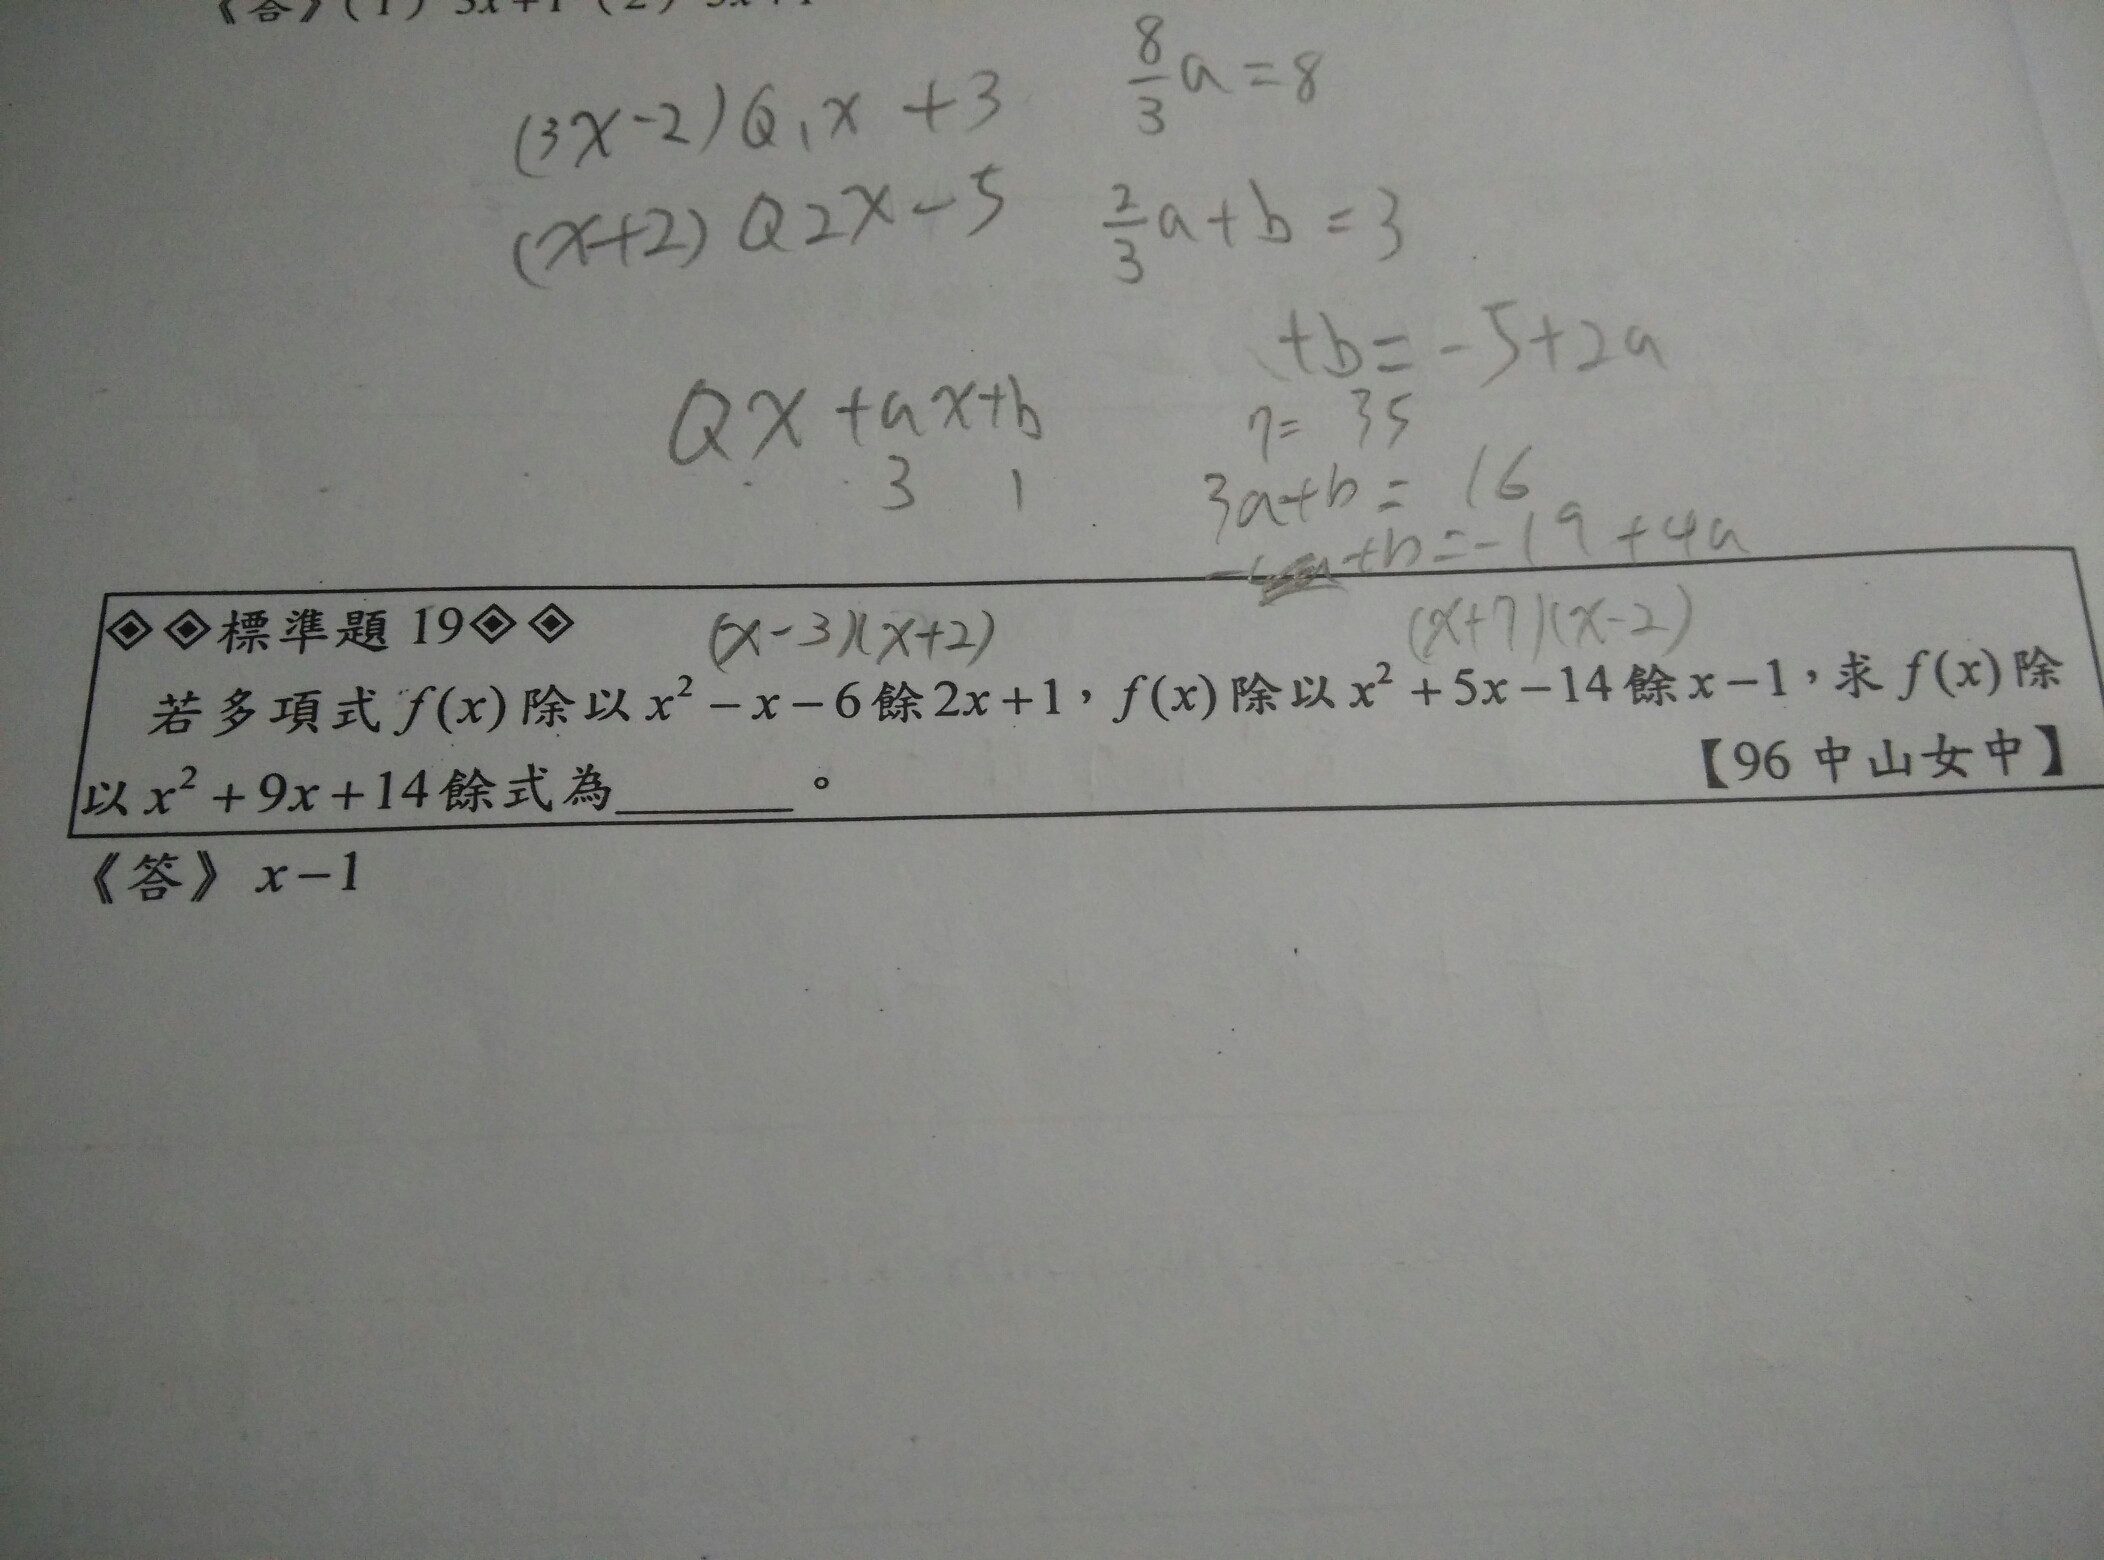 《答》(1) 3x+1 (2)
(3x-2)Q₁x+3
8/3 a=8
(x+2)Q2x-5
2/3 a+b=3
+b=-5+2a
7= 35
Qx+ax+b
3 1
3a+b=16
+b=-19+4a
◈◈標準題19◈◈ (x-3)(x+2) (x+7)(x-2)
若多項式f(x)除以x²-x-6餘2x+1，f(x)除以x²+5x-14餘x-1，求f(x)除
以x²+9x+14餘式為______。 【96中山女中】
《答》x-1